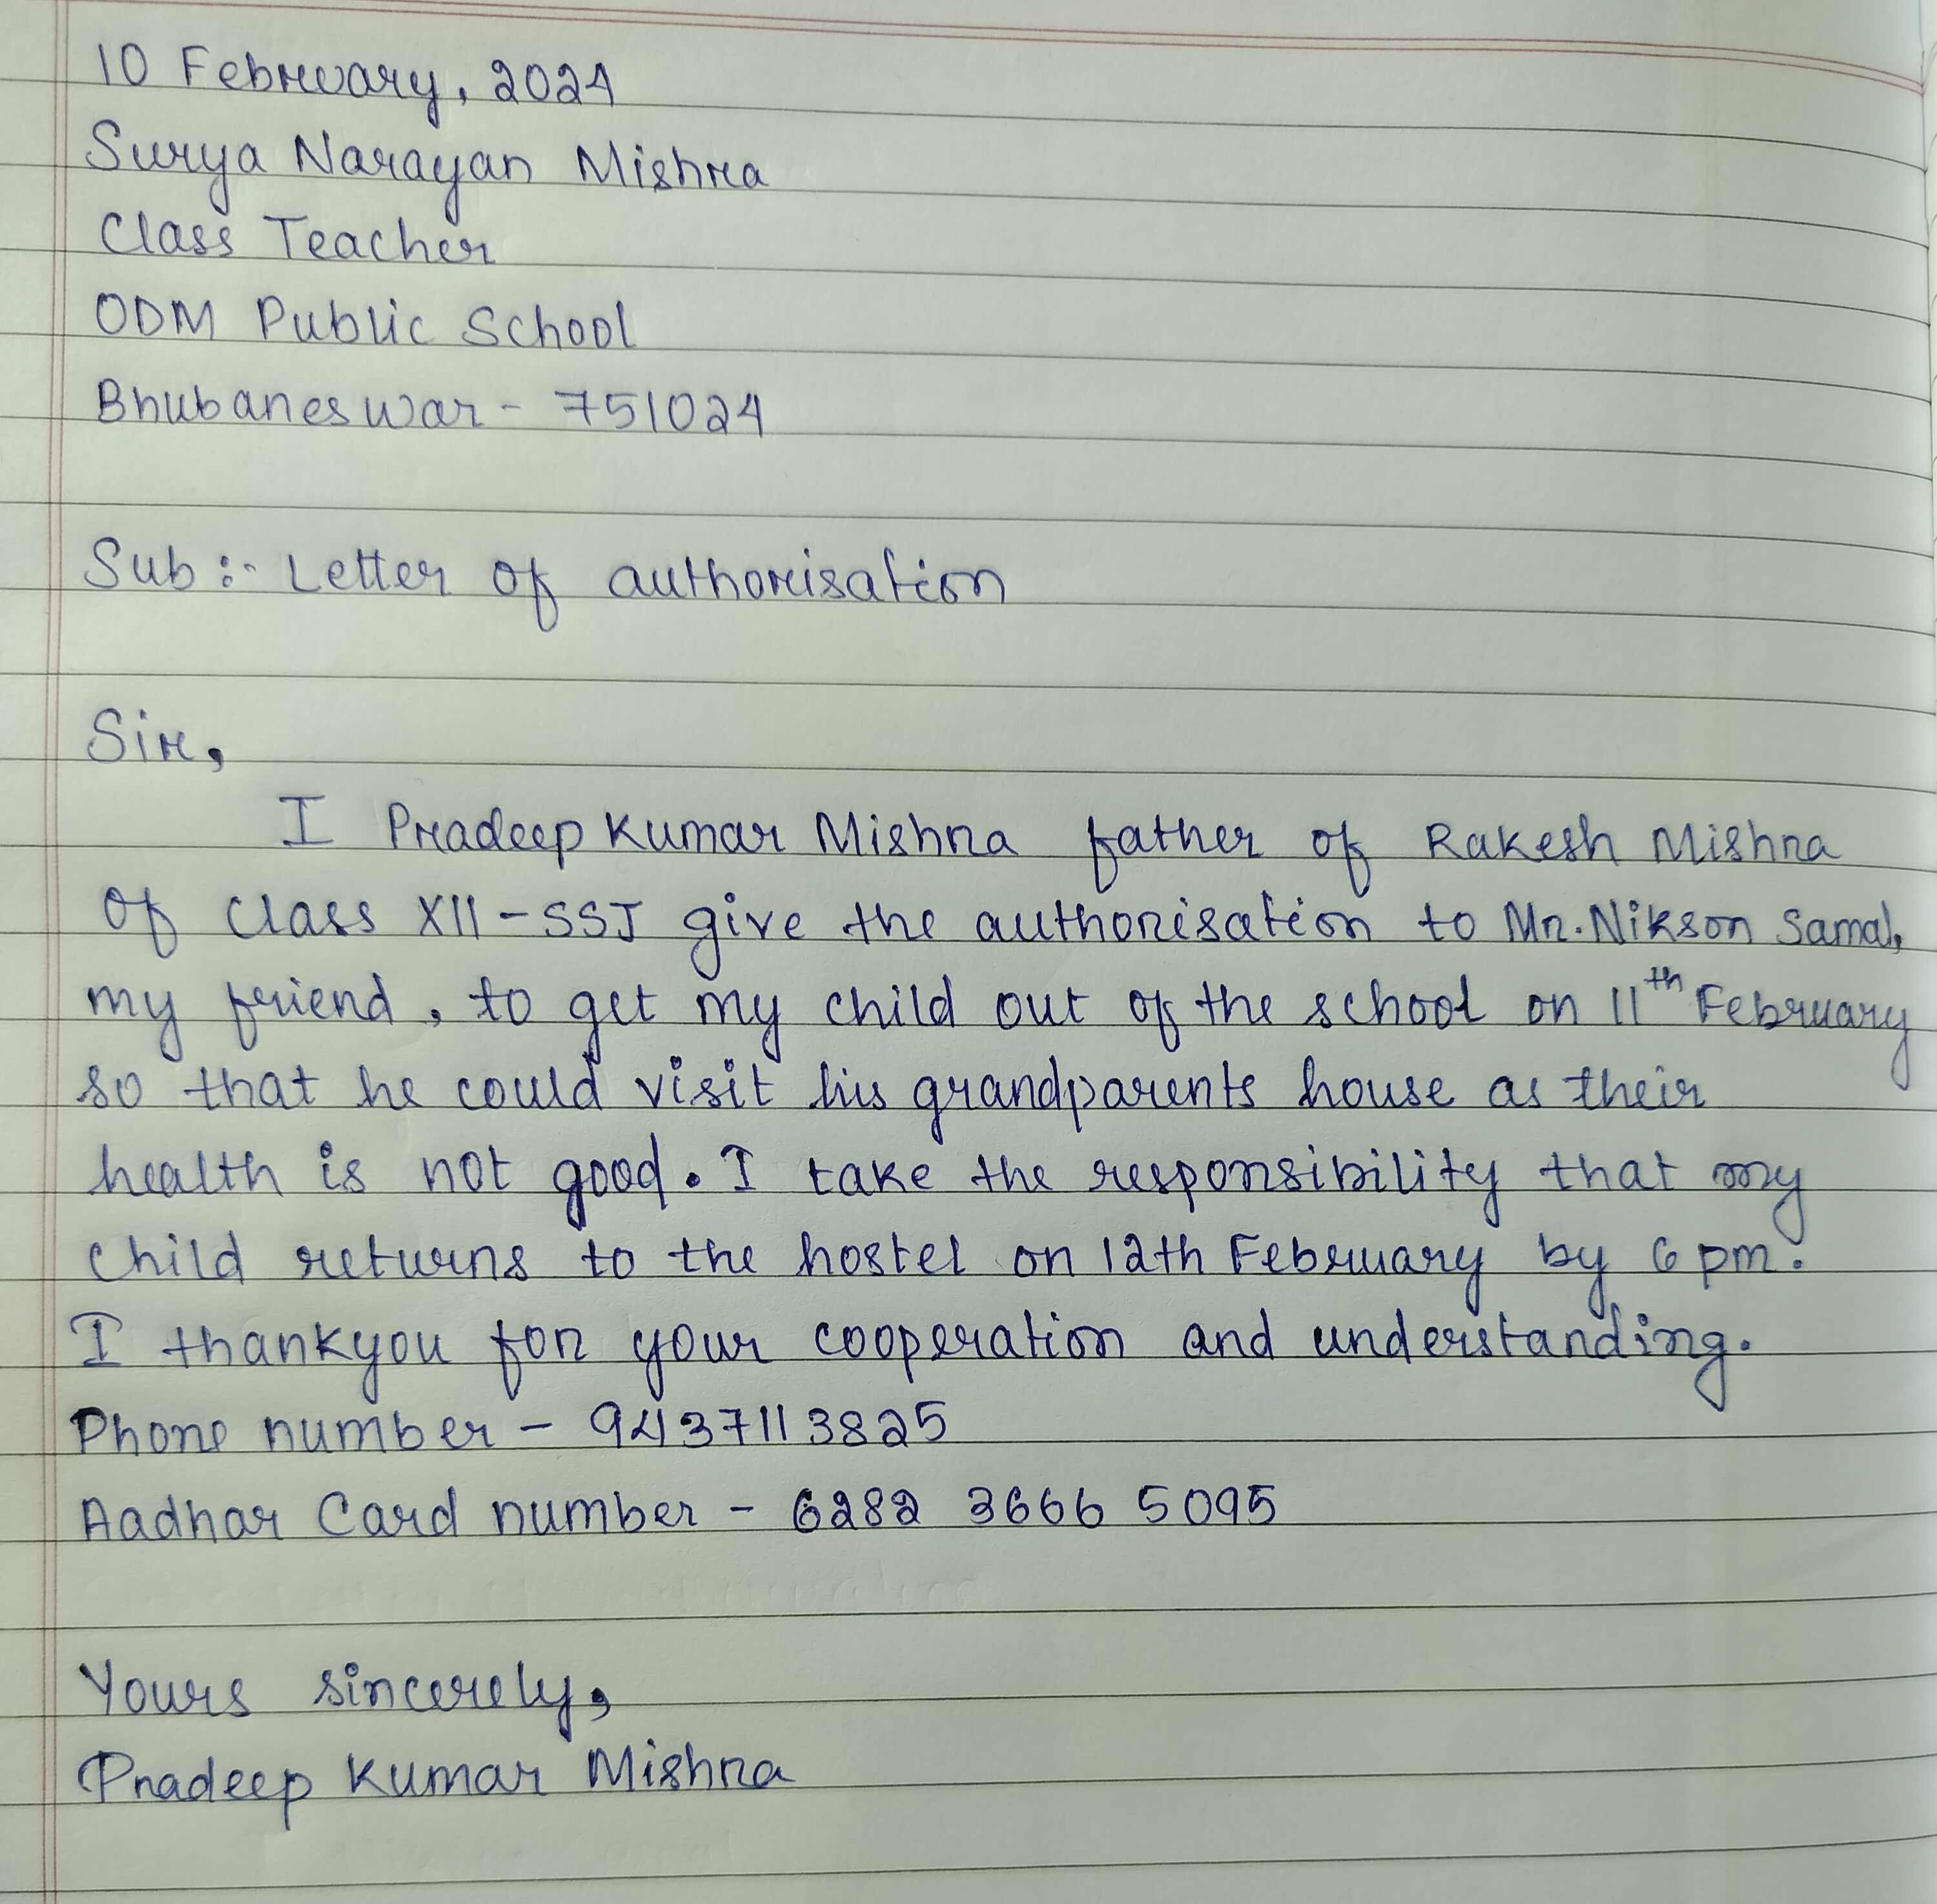 10 February, 2024
Surya Narayan Mishra
Class Teacher
ODM Public School
Bhubaneswar - 751024
Sub :- Letter of authorisation
Sir,
I Pradeep Kumar Mishra father of Rakesh Mishra
of Class XII - SSJ give the authorisation to Mr. Nikson Samal,
my friend, to get my child out of the school on 11th February
so that he could visit his grandparents house as their
health is not good. I take the responsibility that my
child returns to the hostel on 12th February by 6 pm.
I thankyou for your cooperation and understanding.
Phone number - 9437113825
Aadhar Card number - 6282 3666 5095
Yours sincerely,
Pradeep Kumar Mishra